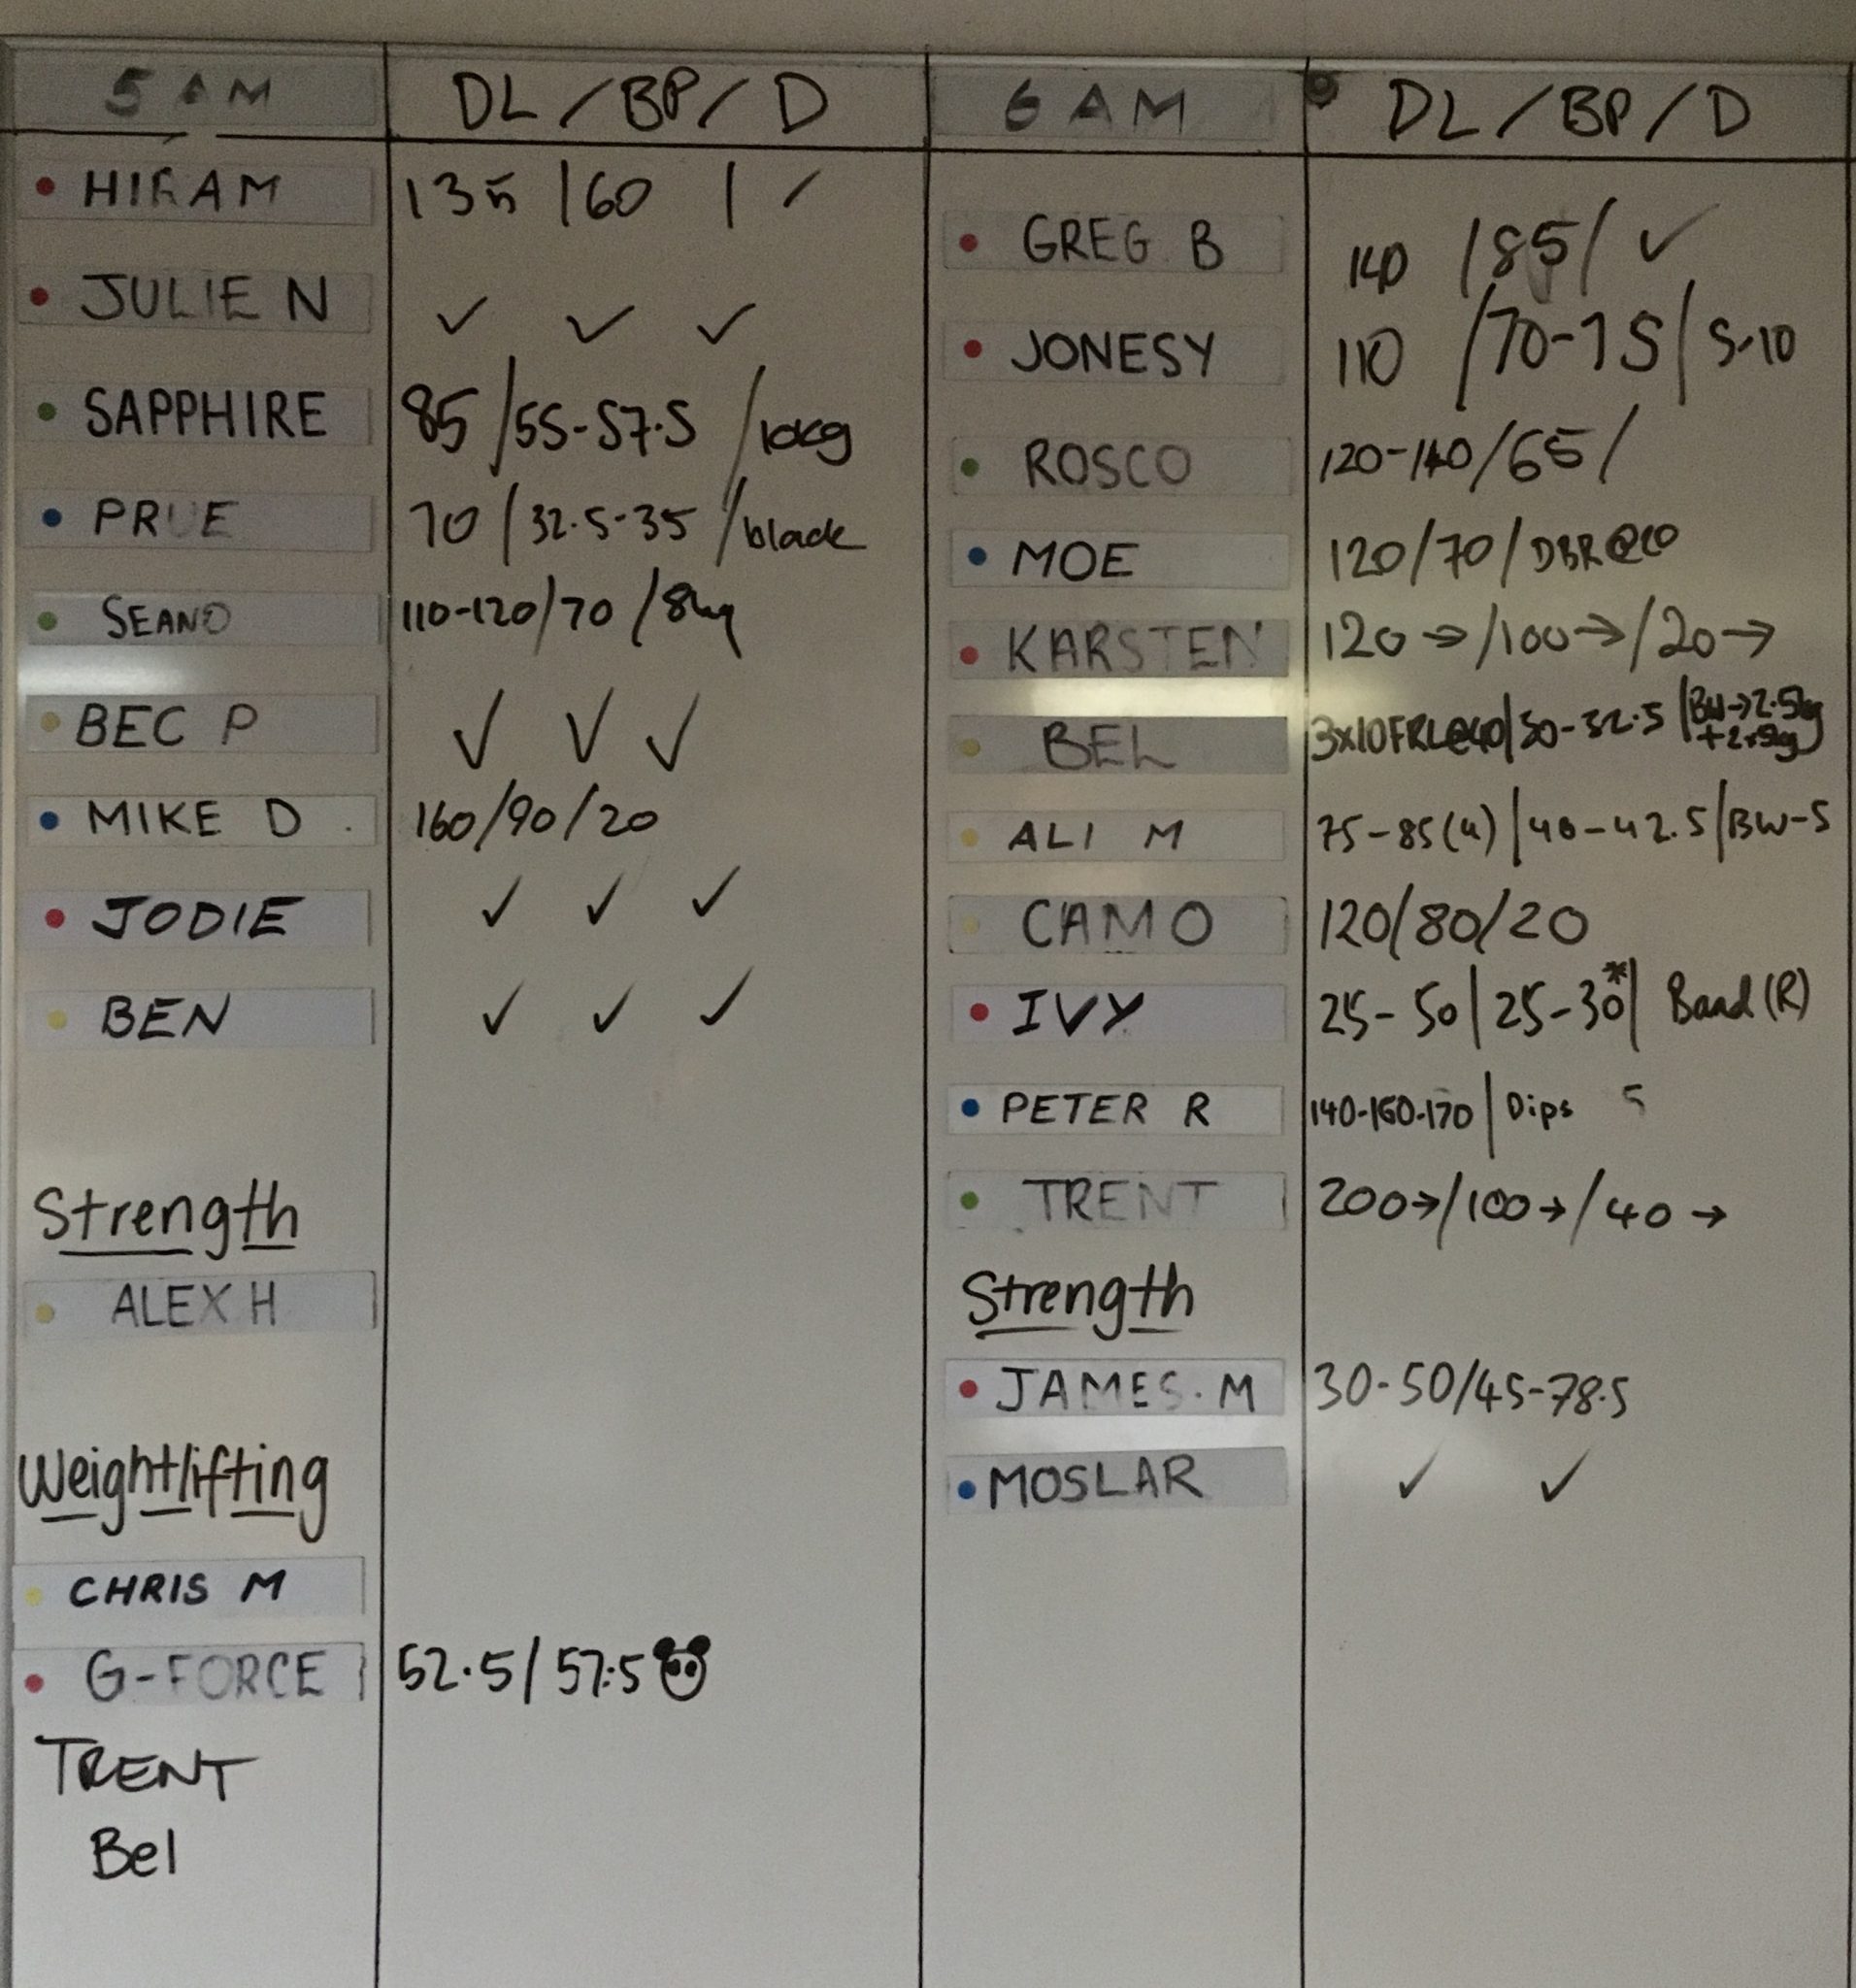 5 AM DL / BP / D
HIRAM 135 / 60 / ✓
JULIE N ✓ ✓ ✓
SAPPHIRE 85 / 55-57.5 / 10kg
PRUE 70 / 32.5-35 / black
SEANO 110-120 / 70 / 8kg
BEC P ✓ ✓ ✓
MIKE D 160/90/20
JODIE ✓ ✓ ✓
BEN ✓ ✓ ✓
Strength
ALEX H
Weightlifting
CHRIS M
G-FORCE 52.5 / 57.5
TRENT
Bel
6 AM DL / BP / D
GREG B 140 / 85 / ✓
JONESY 110 / 70-75 / 5-10
ROSCO 120-140 / 65 /
MOE 120/70/DBR@
KARSTEN 120→/100→/20→
BEL 3x10FRL@40 | 30-32.5 | BW→2.5kg
+2.5kg
ALI M 75-85(4) | 40-42.5 | BW-5
CAMO 120/80/20
IVY 25-50 | 25-30* | Band (R)
PETER R 140-160-170 | Dips 5
TRENT 200→/100→/40→
Strength
JAMES M 30-50/45-78.5
MOSLAR ✓ ✓